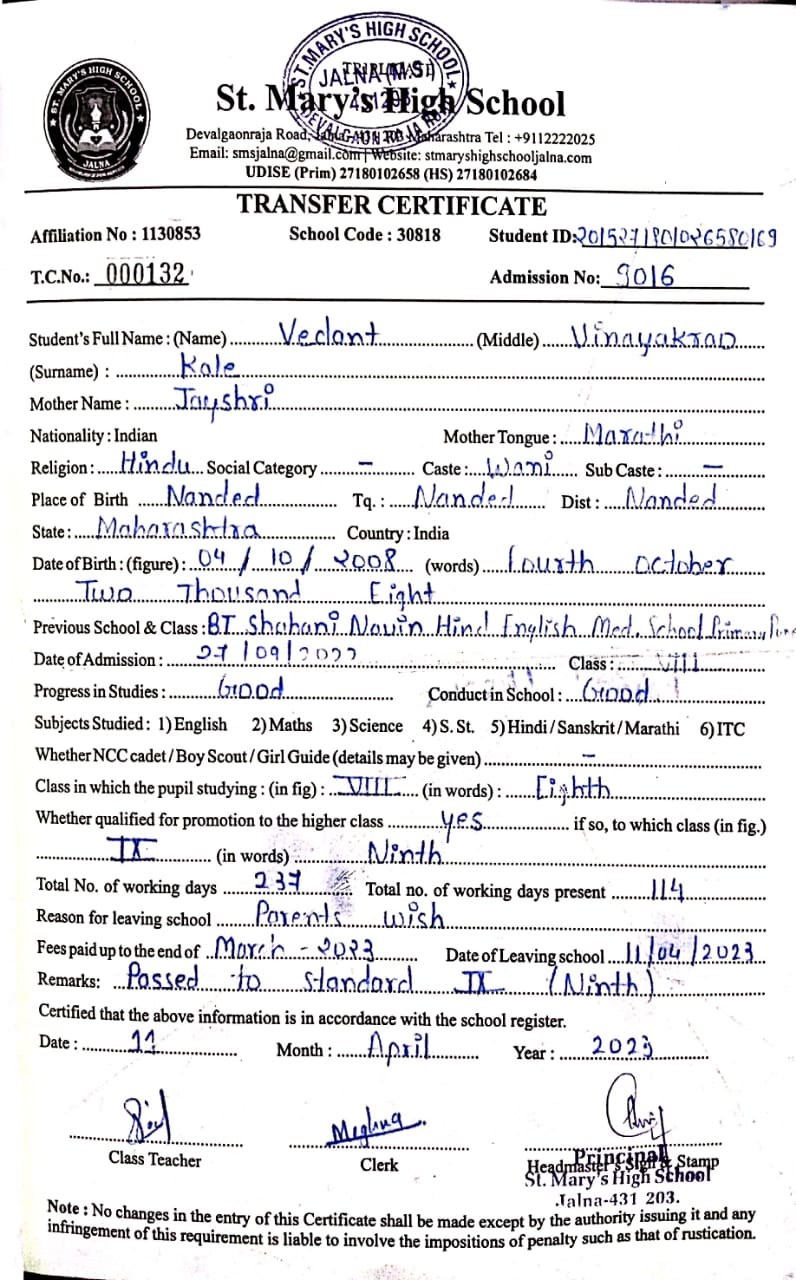 ST. MARY'S HIGH SCHOOL
JALNA (M.S)
ST. MARY'S HIGH SCHOOL
JALNA
St. Mary's High School
Devalgaonraja Road, Maharashtra Tel : +9112222025
Email: smsjalna@gmail.com | Website: stmaryshighschooljalna.com
UDISE (Prim) 27180102658 (HS) 27180102684
TRANSFER CERTIFICATE
Affiliation No : 1130853 School Code : 30818 Student ID: 2015271801026580169
T.C.No.: 000132 Admission No: 9016
Student's Full Name : (Name) Vedant (Middle) Vinayakrao
(Surname) : Kale
Mother Name : Jayshri
Nationality : Indian Mother Tongue : Marathi
Religion : Hindu Social Category – Caste : Wani Sub Caste : –
Place of Birth Nanded Tq. : Nanded Dist : Nanded
State : Maharashtra Country : India
Date of Birth : (figure) : 04 / 10 / 2008 (words) fourth october
Two Thousand Eight
Previous School & Class : BT Shahani Navin Hind English Med. School Primary
Date of Admission : 27/09/2022 Class : VIII
Progress in Studies : Good Conduct in School : Good
Subjects Studied : 1) English 2) Maths 3) Science 4) S. St. 5) Hindi / Sanskrit / Marathi 6) ITC
Whether NCC cadet / Boy Scout / Girl Guide (details may be given) –
Class in which the pupil studying : (in fig) : VIII (in words) : Eighth
Whether qualified for promotion to the higher class yes if so, to which class (in fig.)
IX (in words) Ninth
Total No. of working days 237 Total no. of working days present 114
Reason for leaving school Parents wish
Fees paid up to the end of March - 2023 Date of Leaving school 11/04/2023
Remarks: Passed to standard IX (Ninth)
Certified that the above information is in accordance with the school register.
Date : 11 Month : April Year : 2023
Meghna
Class Teacher Clerk Headmaster's Sign & Stamp
Principal
St. Mary's High School
Jalna-431 203.
Note : No changes in the entry of this Certificate shall be made except by the authority issuing it and any
infringement of this requirement is liable to involve the impositions of penalty such as that of rustication.